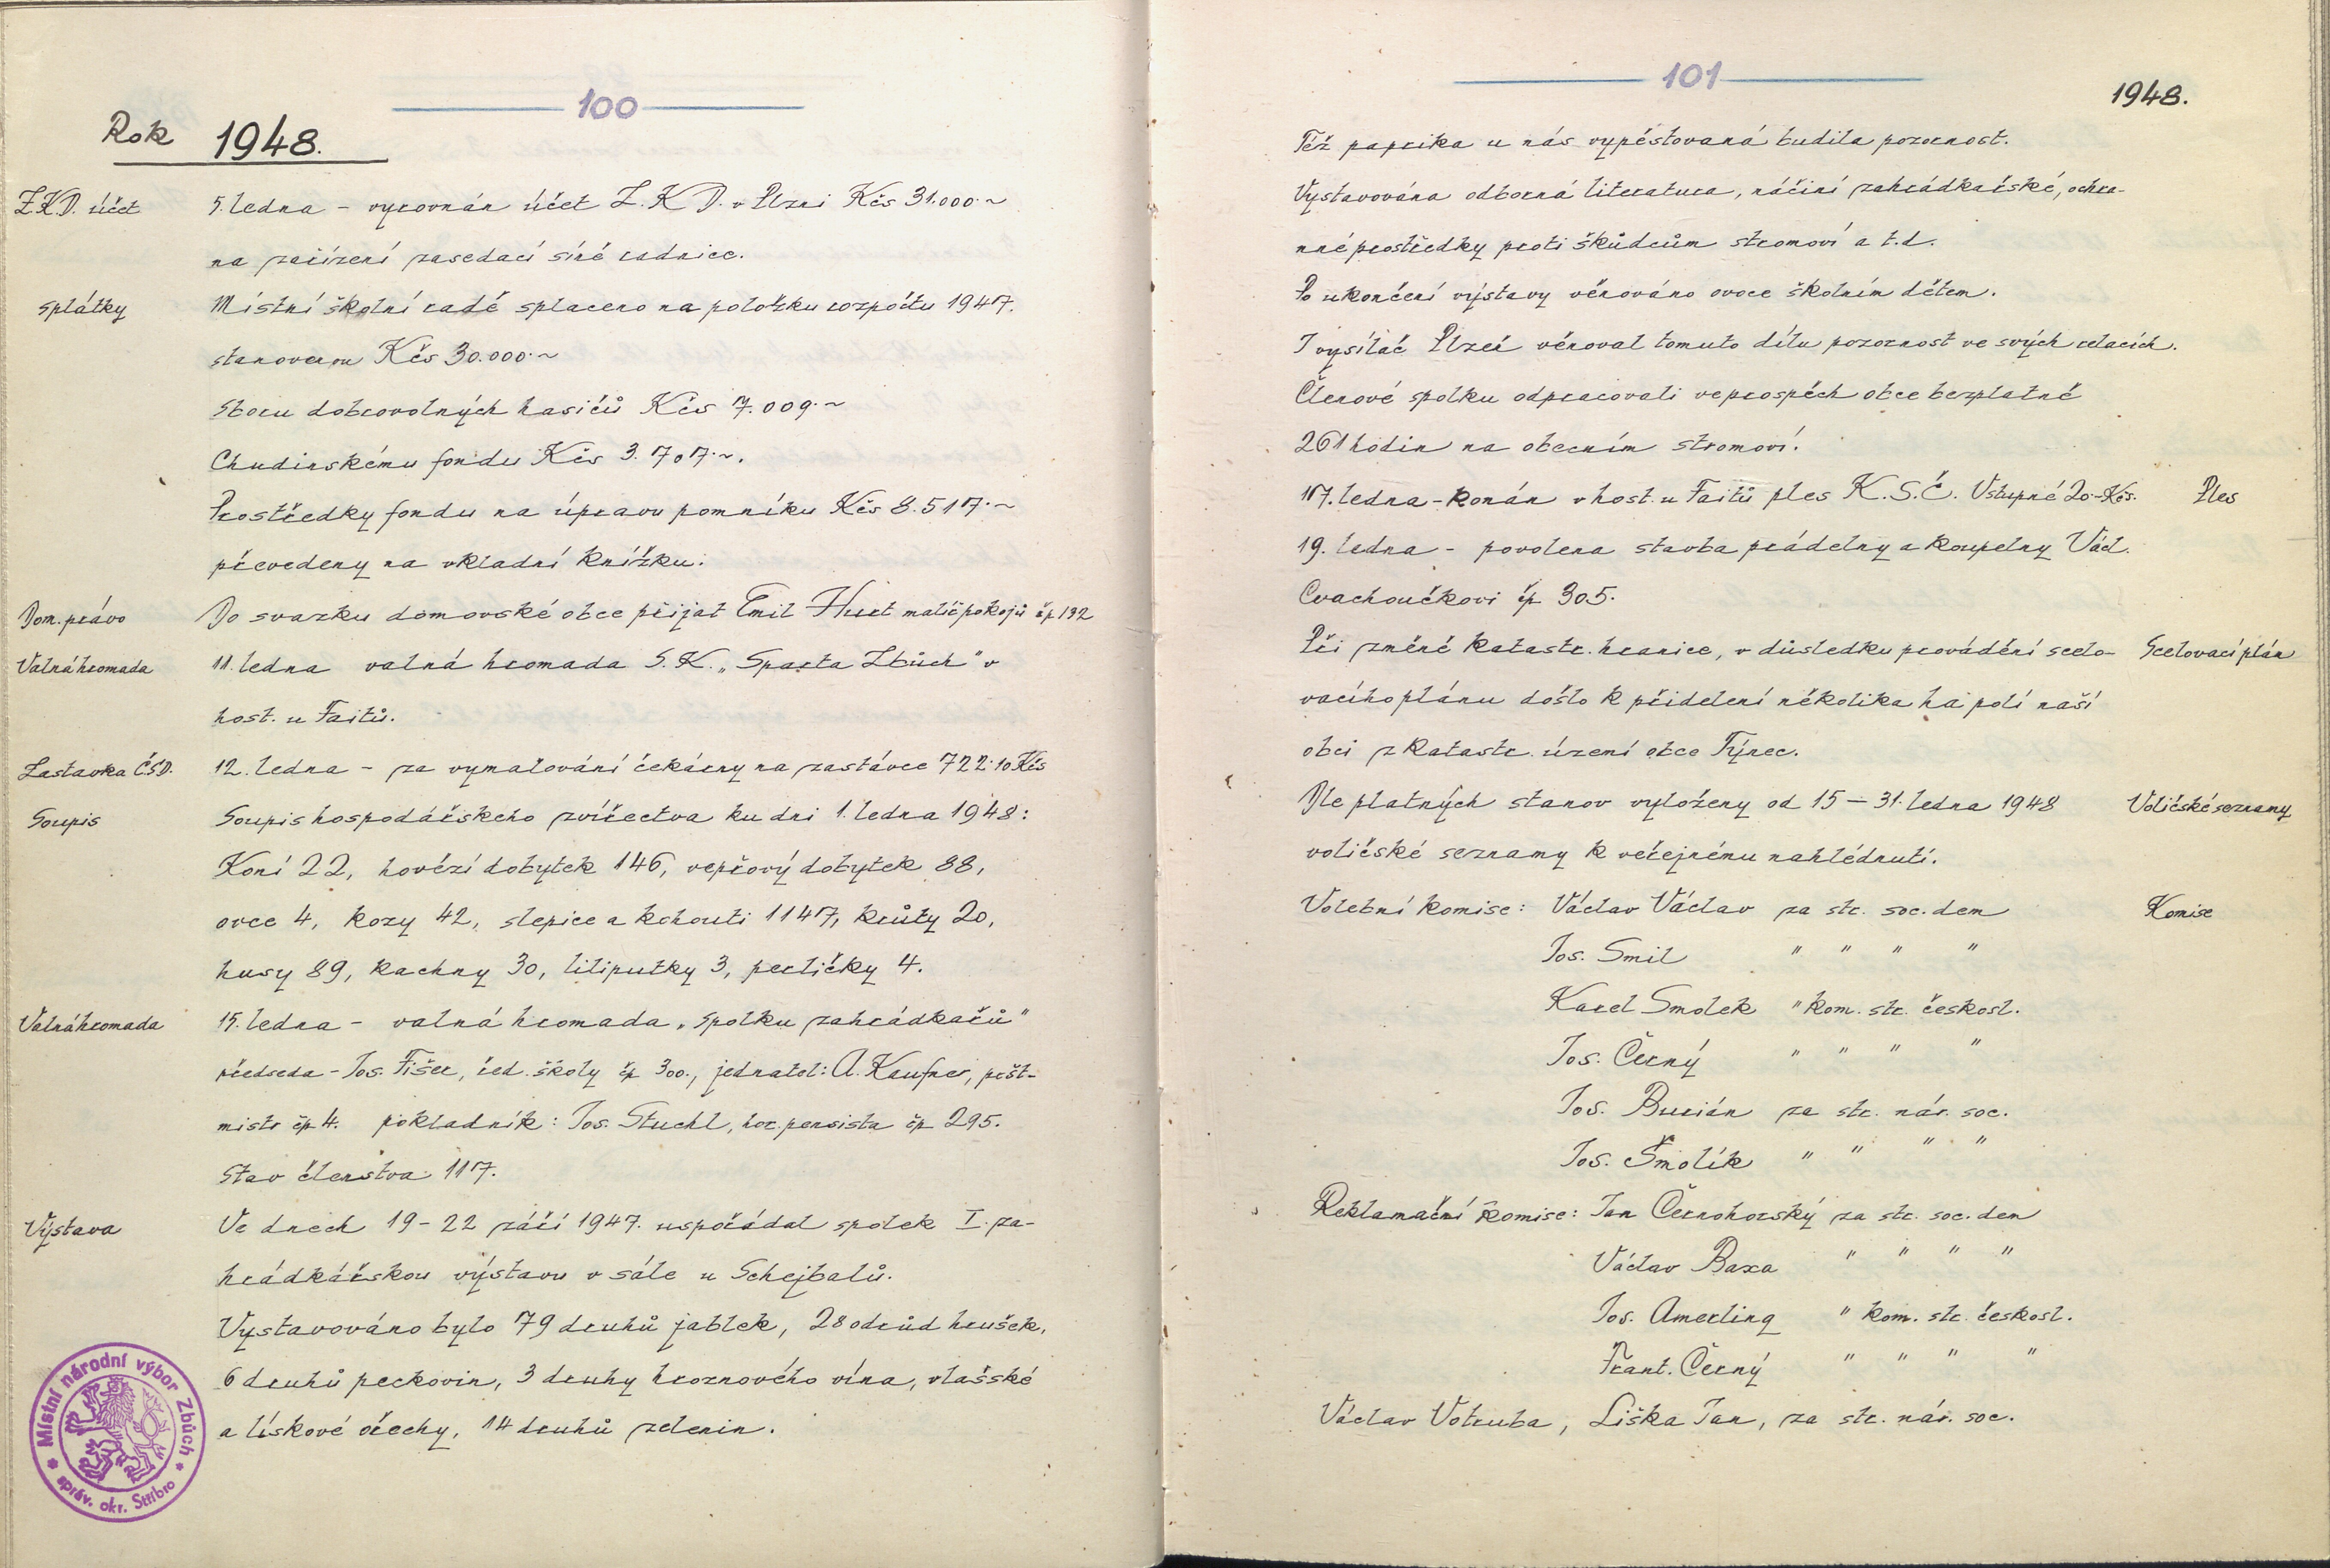 100
Rok 1948.
Z.K.D. účet
5. ledna - vyrovnán účet Z.K.D. v Plzni Kčs 31.000.~
na zařízení zasedací síně radnice.
splátky
Místní školní radě splaceno na položku rozpočtu 1947.
stanovenou Kčs 30.000.~
Sboru dobrovolných hasičů Kčs 7.009.~
Chudinskému fondu Kčs 3.707.~.
Prostředky fondu na úpravu pomníku Kčs 8.517.~
převedeny na vkladní knížku.
Dom. právo
Do svazku domovské obce přijat Emil Hurt malíř pokojů čp 192
Valná hromada
11. ledna valná hromada S.K. „Sparta Zbůch" v
host. u Faitů.
Zastávka ČSD.
12. ledna - za vymalování čekárny na zastávce 722.10 Kčs
Soupis
Soupis hospodářského zvířectva ku dni 1. ledna 1948:
Koní 22, hovězí dobytek 146, vepřový dobytek 88,
ovce 4, kozy 42, slepice a kohouti 1147, krůty 20,
husy 89, kachny 30, liliputky 3, perličky 4.
Valná hromada
15. ledna - valná hromada „Spolku zahrádkářů"
předseda - Jos. Fišer, řed. školy čp 300., jednatel: A. Kaufner, pošt-
mistr čp 4. pokladník: Jos. Stuchl, hor. pensista čp 295.
Stav členstva 117.
Výstava
Ve dnech 19-22 září 1947. uspořádal spolek I. za-
hrádkářskou výstavu v sále u Schejbalů.
Vystavováno bylo 79 druhů jablek, 28 odrůd hrušek,
6 druhů peckovin, 3 druhy hroznového vína, vlašské
a lískové ořechy, 14 druhů zelenin.
Místní národní výbor Zbůch
správ. okr. Stříbro
101
1948.
Též paprika u nás vypěstovaná budila pozornost.
Vystavována odborná literatura, náčiní zahrádkářské, ochra-
nné prostředky proti škůdcům stromoví a t.d.
Po ukončení výstavy věnováno ovoce školním dětem.
I vysílač Plzeň věnoval tomuto dílu pozornost ve svých relacích.
Členové spolku odpracovali ve prospěch obce bezplatně
261 hodin na obecním stromoví.
17. ledna - konán v host. u Faitů ples K.S.Č. Vstupné 20.- Kčs.
Ples
19. ledna - povolena stavba prádelny a koupelny Václ.
Cvachoučkovi čp 305.
Při změně katastr. hranice, v důsledku provádění scelo-
Scelovací plán
vacího plánu došlo k přidelení několika ha polí naší
obci z katastr. území obce Týnec.
Dle platných stanov vyloženy od 15 - 31. ledna 1948
Voličské seznamy
voličské seznamy k veřejnému nahlédnutí.
Volební komise: Václav Václav za str. soc. dem
Komise
Jos. Smil " " " "
Karel Smolek " kom. str. českosl.
Jos. Černý " " " "
Jos. Burián za str. nár. soc.
Jos. Šmolík " " " "
Reklamační komise: Jan Černohorský za str. soc. dem
Václav Baxa " " " "
Jos. Amerling " kom. str. českosl.
Frant. Černý " " " "
Václav Votruba, Liška Jan, za str. nár. soc.